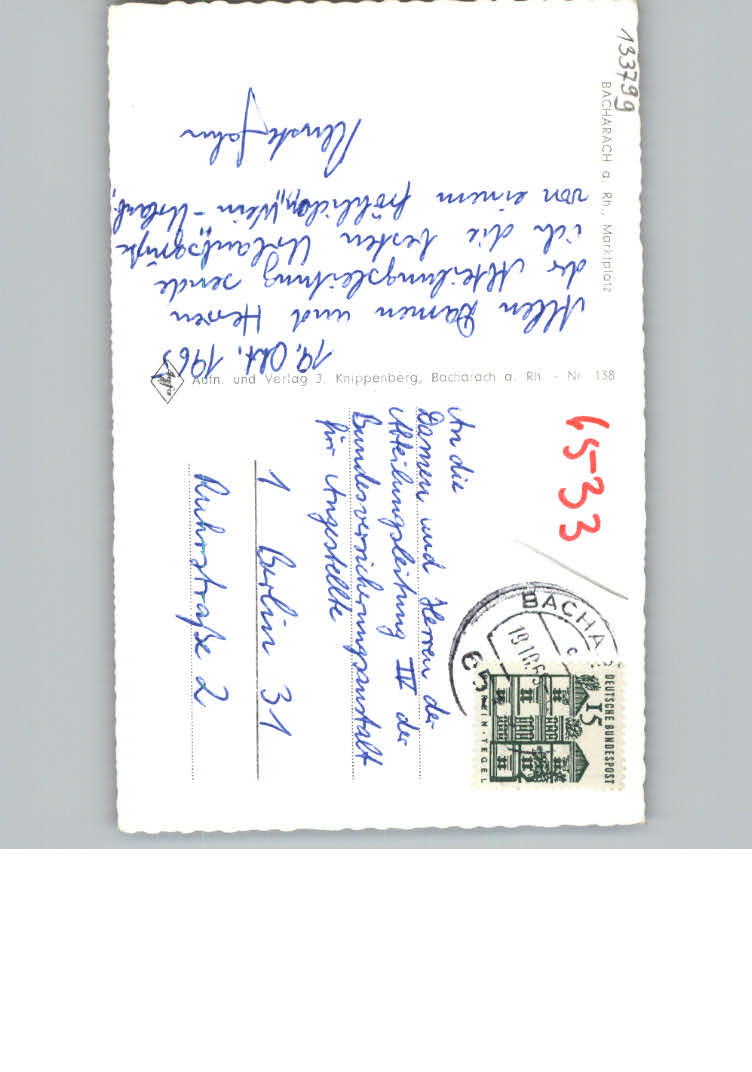 133799
BACHARACH a. Rh., Marktplatz
19. Okt. 1965
Allen Damen und Herren
der Abteilungsleitung sende
ich die besten Urlaubsgrüße
von einem fröhlichen „Wein-Urlaub“,
Aufn. und Verlag J. Knippenberg, Bacharach a. Rh. - Nr. 138
Agfa
65-33
An die
Damen und Herren der
Abteilungsleitung IV der
Bundesversicherungsanstalt
für Angestellte
1 Berlin 31
Ruhrstraße 2
BACHA
19.10.65
DEUTSCHE BUNDESPOST
15
TEGEL